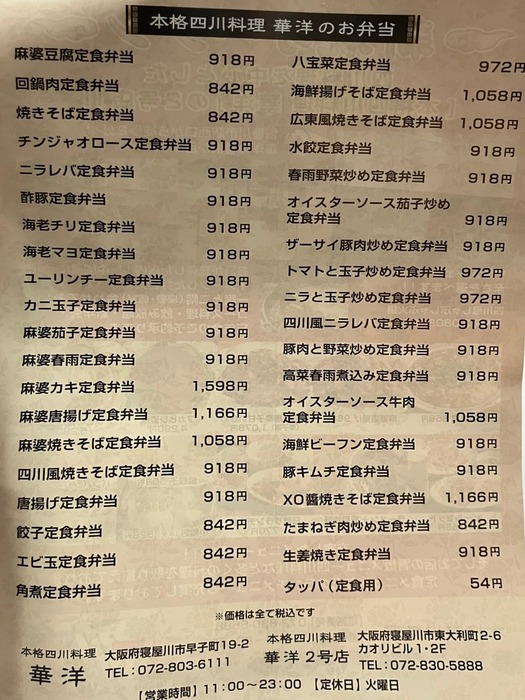 本格四川料理 華洋のお弁当
麻婆豆腐定食弁当 918円
回鍋肉定食弁当 842円
焼きそば定食弁当 842円
チンジャオロース定食弁当 918円
ニラレバ定食弁当 918円
酢豚定食弁当 918円
海老チリ定食弁当 918円
海老マヨ定食弁当 918円
ユーリンチー定食弁当 918円
カニ玉子定食弁当 918円
麻婆茄子定食弁当 918円
麻婆春雨定食弁当 918円
麻婆カキ定食弁当 1,598円
麻婆唐揚げ定食弁当 1,166円
麻婆焼きそば定食弁当 1,058円
四川風焼きそば定食弁当 918円
唐揚げ定食弁当 918円
餃子定食弁当 842円
エビ玉定食弁当 842円
角煮定食弁当 842円
八宝菜定食弁当 972円
海鮮揚げそば定食弁当 1,058円
広東風焼きそば定食弁当 1,058円
水餃定食弁当 918円
春雨野菜炒め定食弁当 918円
オイスターソース茄子炒め
定食弁当 918円
ザーサイ豚肉炒め定食弁当 918円
トマトと玉子炒め定食弁当 972円
ニラと玉子炒め定食弁当 972円
四川風ニラレバ定食弁当 918円
豚肉と野菜炒め定食弁当 918円
高菜春雨煮込み定食弁当 918円
オイスターソース牛肉
定食弁当 1,058円
海鮮ビーフン定食弁当 918円
豚キムチ定食弁当 918円
XO醬焼きそば定食弁当 1,166円
たまねぎ肉炒め定食弁当 842円
生姜焼き定食弁当 918円
タッパ(定食用) 54円
※価格は全て税込です
本格四川料理
華洋
大阪府寝屋川市早子町19-2
TEL:072-803-6111
本格四川料理
華洋 2号店
大阪府寝屋川市東大利町2-6
カオリビル1・2F
TEL:072-830-5888
【営業時間】11:00~23:00 【定休日】火曜日